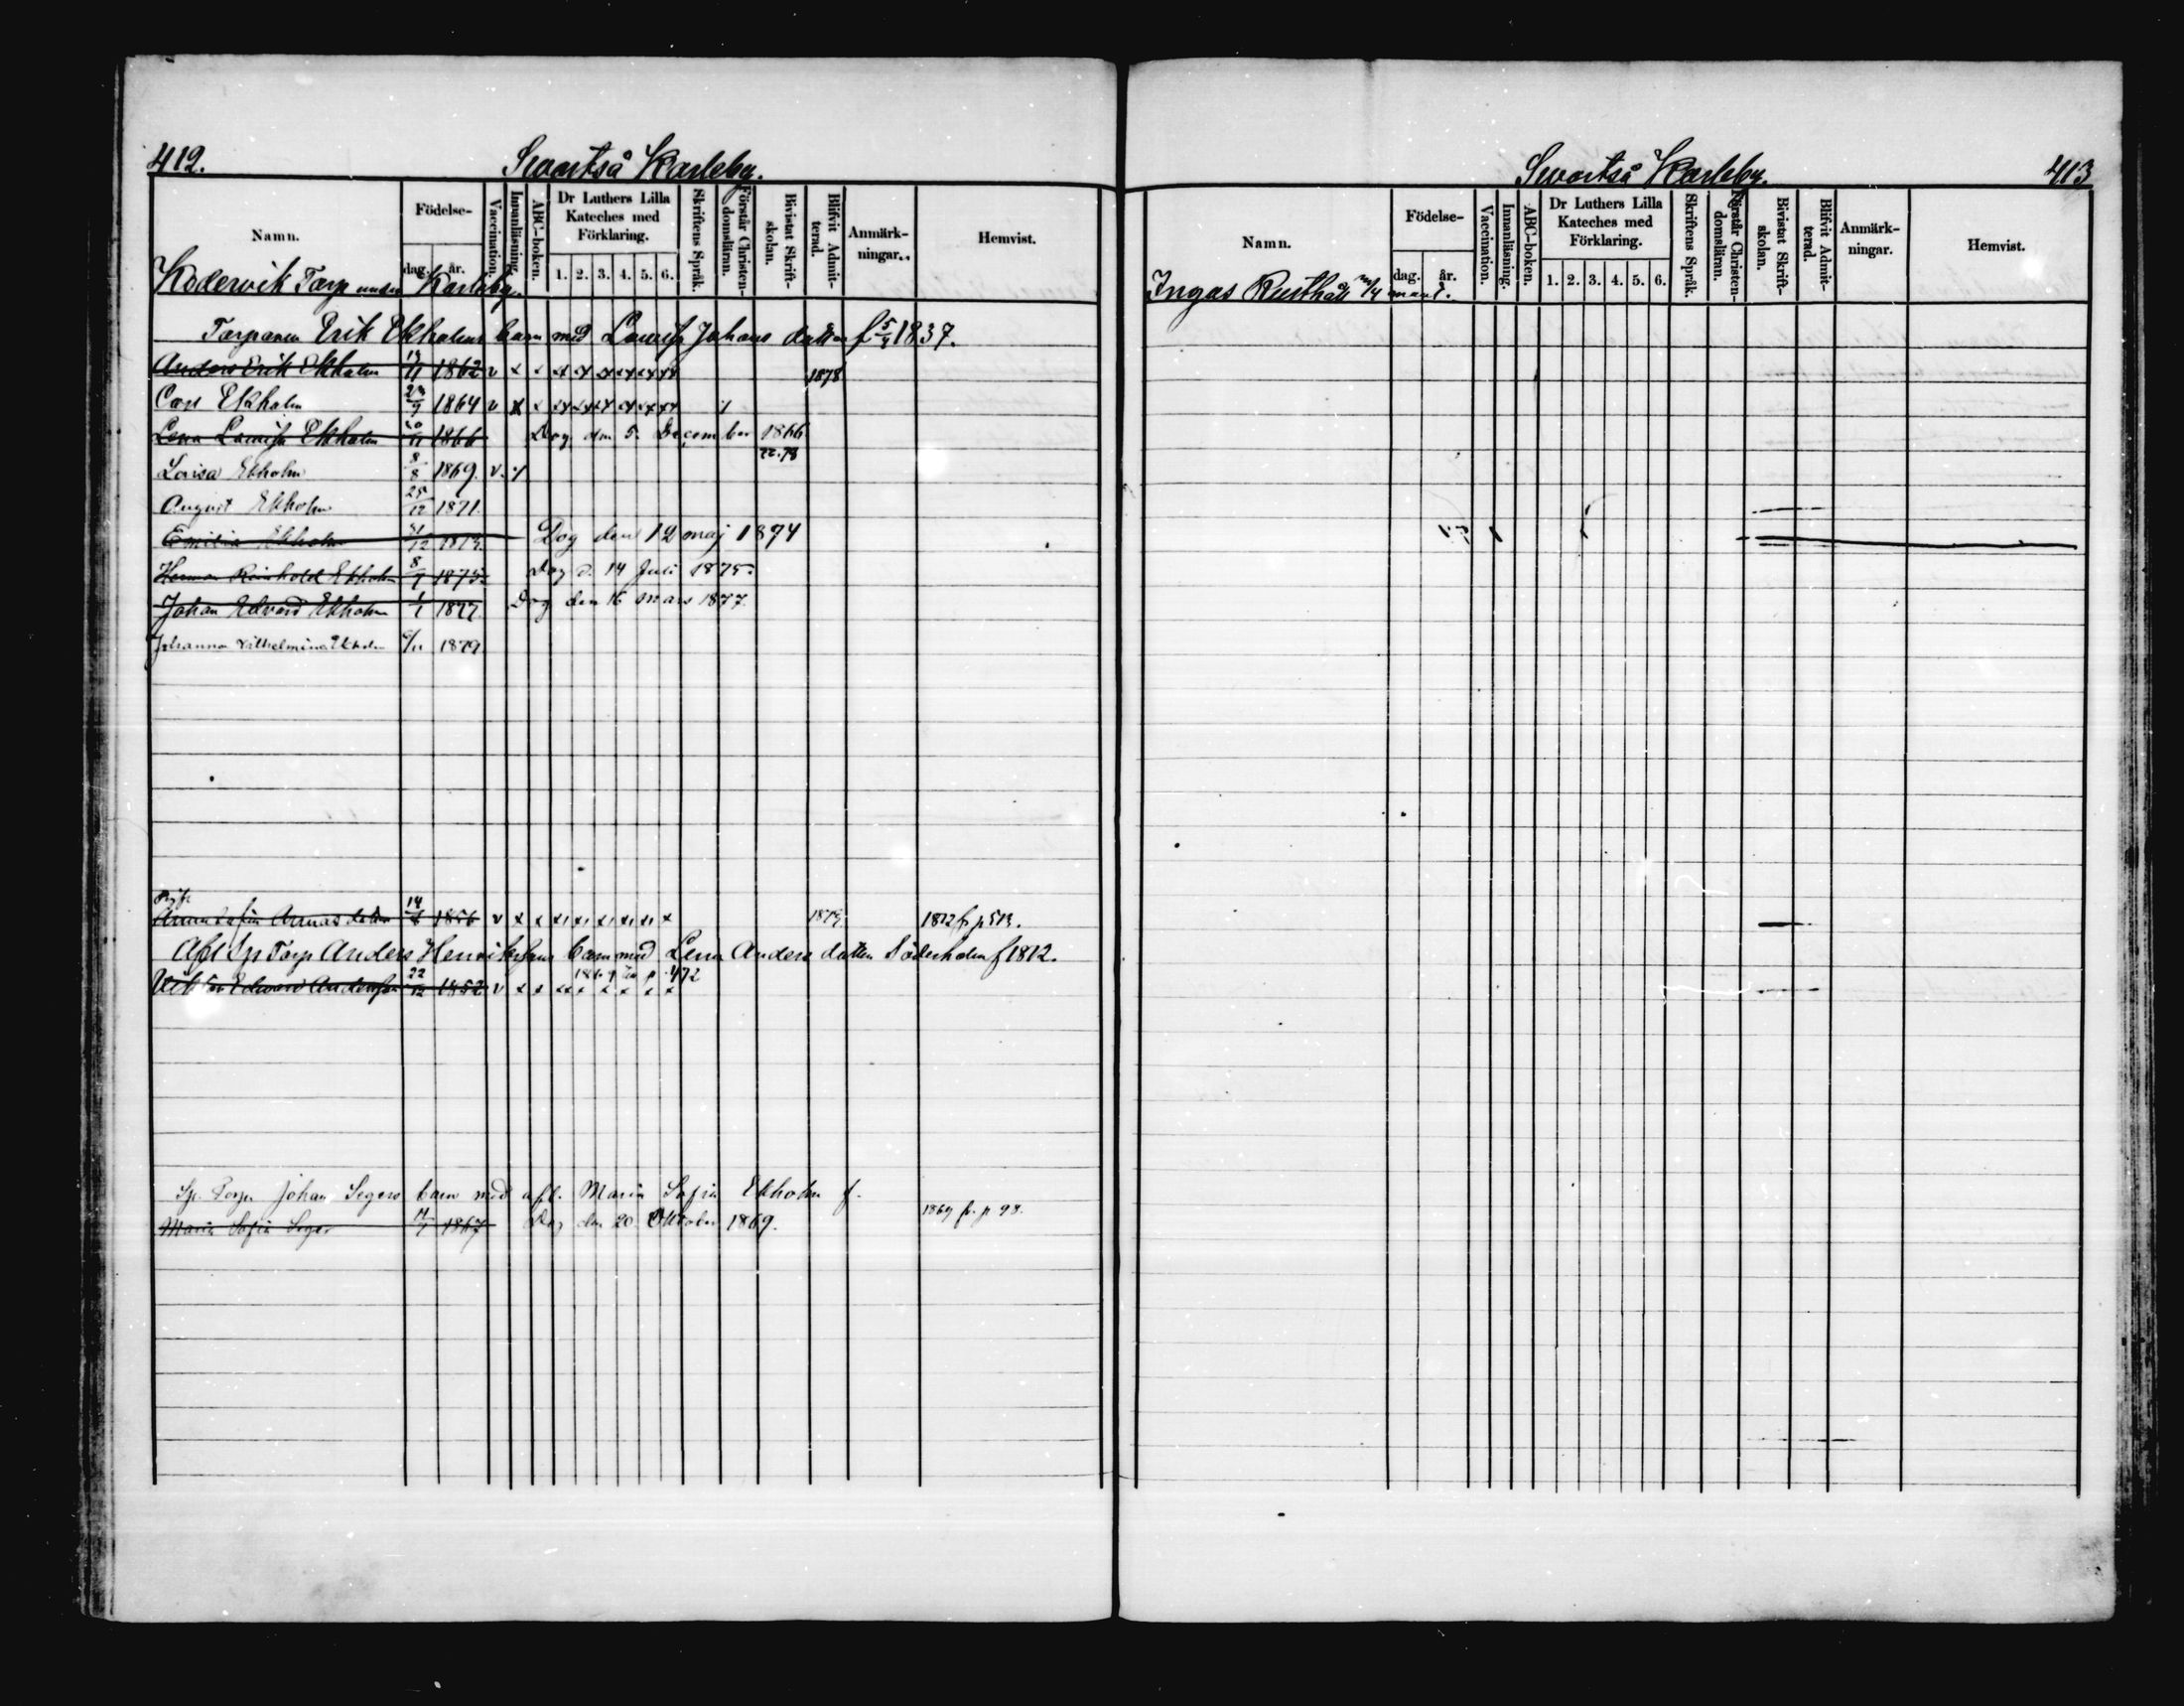 412. Swartså Karleby.
Namn. Födelse- dag. år. Vaccination. Innanläsning. ABC-boken. Dr Luthers Lilla Kateches med Förklaring. 1. 2. 3. 4. 5. 6. Skriftens Språk. Förstår Christen-domsläran. Bivistat Skrift-skolan. Blifvit Admit-terad. Anmärk-ningar. Hemvist.
Kodervik Torp under Karleby.
Torparen Erik Ekholms barn med Lovisa Johans dotter f 5/4 1837.
Anders Erik Ekholm 19/11 1862 v x x x x x x x x 1878
Carl Ekholm 1864 v x x
Lena Lovisa Ekholm 20/11 1866 Dog den 5. December 1866
22.78
Lovisa Ekholm 8/8 1869. v.
August Ekholm 25/12 1871.
Emilia Ekholm 21/12 1873. Dog den 12 maj 1874
Herman Reinhold Ekholm 8/7 1875. Dog d. 14 Juli 1875.
Johan Edvard Ekholm 1/1 1877. Dog den 16 Mars 1877.
Johanna Vilhelmina Ekholm 6/11 1879
Pig
Anna Sofia Annas dotter 14 1856 v x x 1873. 1872 fr p 513.
Afl Sp Torp Anders Henrikssons barn med Lena Anders dotter Söderholm f 1812.
p 472
Viktor Edvard Andersson 22/12 1852 v x x
Sp. Torp. Johan Segers barn med afl. Maria Sofia Ekholm f.
Maria Sofia Seger 1867 Dog den 20. Oktober 1869. 1869 fr. p 98.
Swartså Karleby. 413
Namn. Födelse- dag. år. Vaccination. Innanläsning. ABC-boken. Dr Luthers Lilla Kateches med Förklaring. 1. 2. 3. 4. 5. 6. Skriftens Språk. Förstår Christen-domsläran. Bivistat Skrift-skolan. Blifvit Admit-terad. Anmärk-ningar. Hemvist.
Ingas Rusthåll mant.